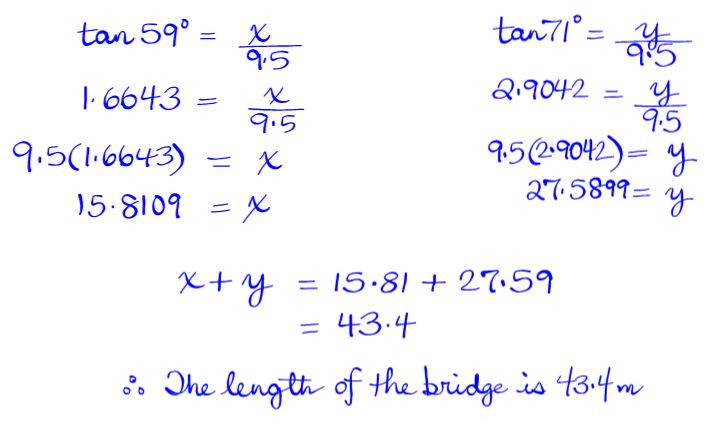 tan 59° = x/9.5
1.6643 = x/9.5
9.5(1.6643) = x
15.8109 = x
tan 71° = y/9.5
2.9042 = y/9.5
9.5(2.9042) = y
27.5899 = y
x + y = 15.81 + 27.59
= 43.4
∴ The length of the bridge is 43.4 m